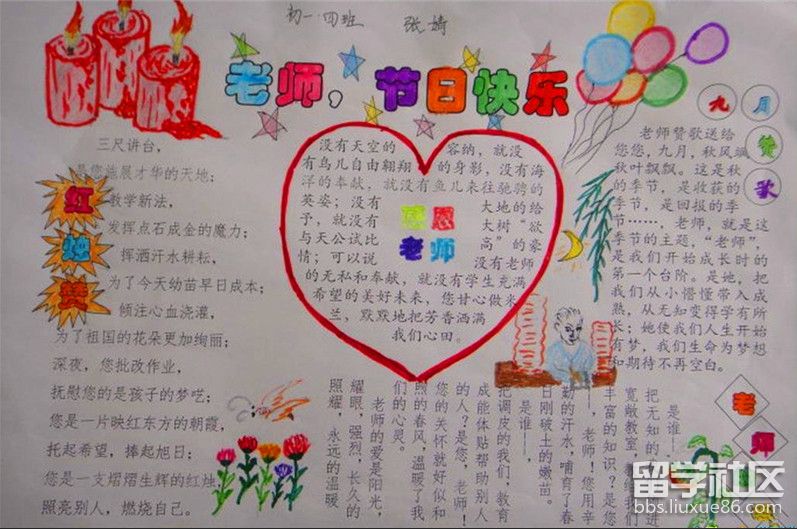 初一·四班 张婧
老师，节日快乐
红烛赞
三尺讲台，
是您施展才华的天地；
教学新法，
发挥点石成金的魔力；
挥洒汗水耕耘，
为了今天幼苗早日成本；
倾注心血浇灌，
为了祖国的花朵更加绚丽；
深夜，您批改作业，
抚慰您的是孩子的梦呓；
您是一片映红东方的朝霞，
托起希望，捧起旭日；
您是一支熠熠生辉的红烛，
照亮别人，燃烧自己。
感恩
老师
没有天空的容纳，就没
有鸟儿自由翱翔的身影，没有海
洋的奉献，就没有鱼儿来往驰骋的
英姿；没有大地的给
予，就没有大树“欲
与天公试比高”的豪
情；可以说没有老师
的无私和奉献，就没有学生充满
希望的美好未来，您甘心做米
兰，默默地把芳香洒满
我们心田。
九月赞歌
老师赞歌送给
您您，九月，秋风飒
秋叶飘飘。这是秋
的季节，是收获的
季节，是回报的季
节……，老师，就是这
季节的主题，“老师”，
是我们开始成长时的
第一个台阶。是她，把
我们从小懵懂带入成
熟，从无知变得学有所
长；她使我们人生开始
有梦，我们生命为梦想
和期待不再空白。
老师
是谁——
把无知的
宽敞教室，
丰富的知识？是您
——，老师！您用辛
勤的汗水，哺育了春
日刚破土的嫩苗。
是谁——，
把调皮的我们，教育
成能体贴帮助别人
的人？是您，老师！
您的关怀就好似和
煦的春风，温暖了我
们的心灵。
老师的爱是阳光，
耀眼，强烈，长久的
照耀，永远的温暖
留学社区
bbs.liuxue86.com